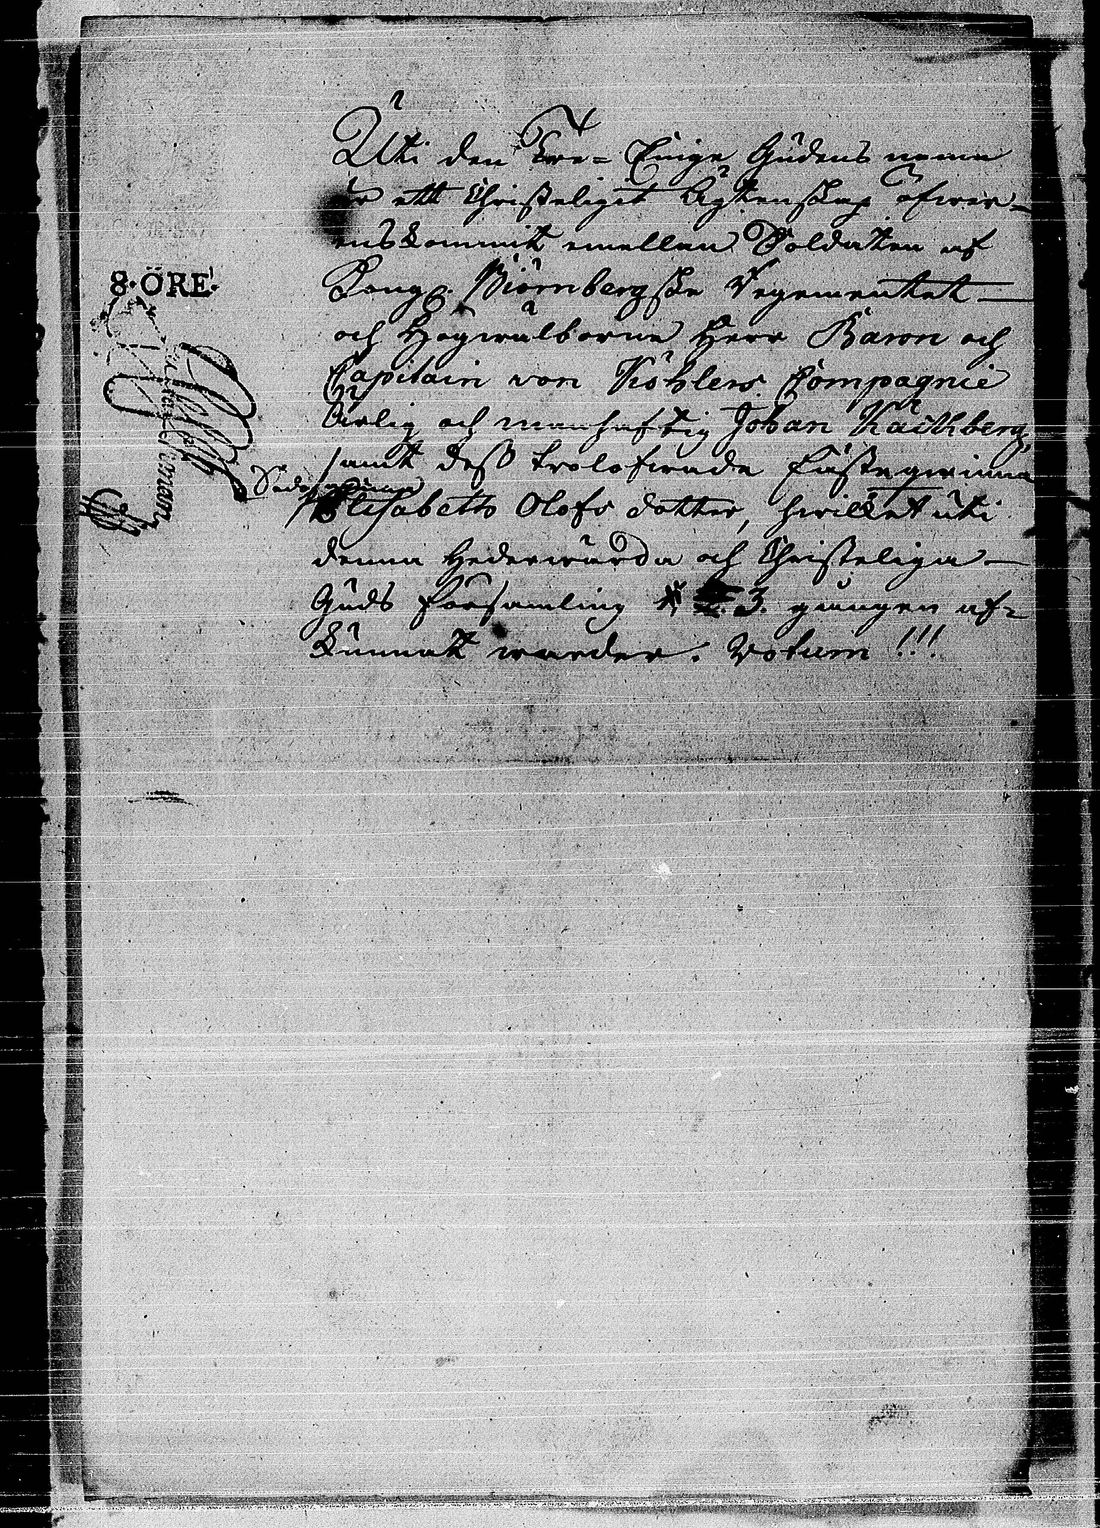 Uti den Tre= Eniga Gudens namn
är ett Christeligit Ägtenskap öfwer-
enskommit emellan Soldaten af
Kongl. Biörnbergske Regementet
och Högwälborne Herr Baron och
Capitain von Köhlers Compagnie
Ärlig och manhaftig Johan Käckberg
samt dess trolofwade fästeqwinna
Elisabeth Olofs dotter, hwilket uti
denna Hederwärda och Christeliga
Guds församling 3. gången af=
kunnat warder. Votum!!!
8. ÖRE.